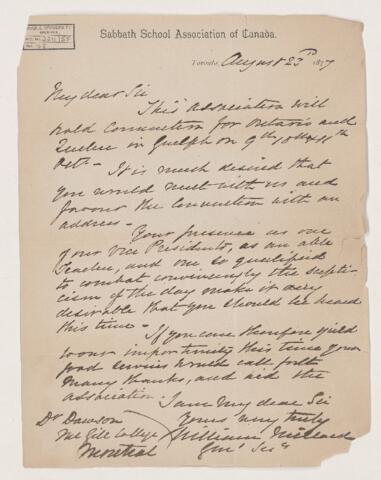 McGILL UNIVERSITY
ARCHIVES
ACC. NO.
REF.
Sabbath School Association of Canada.
Toronto, August 23rd 1877
My dear Sir
This Association will
hold Convention for Ontario and
Quebec in Guelph on 9th 10th & 11th
Octr. - It is much desired that
you would meet with us and
favour the Convention with an
address -
Your presence as one
of our Vice Presidents, as an able
Teacher, and one so qualified
to combat convincingly the scepti-
cism of the day make it very
desirable that you should be heard
this time -
If you can therefore yield
to our importunity this time your
good service would call forth
many thanks, and aid the
association.
I am my dear Sir
Yours very truly
William Millard
Genl Secy
Dr Dawson
McGill College
Montreal